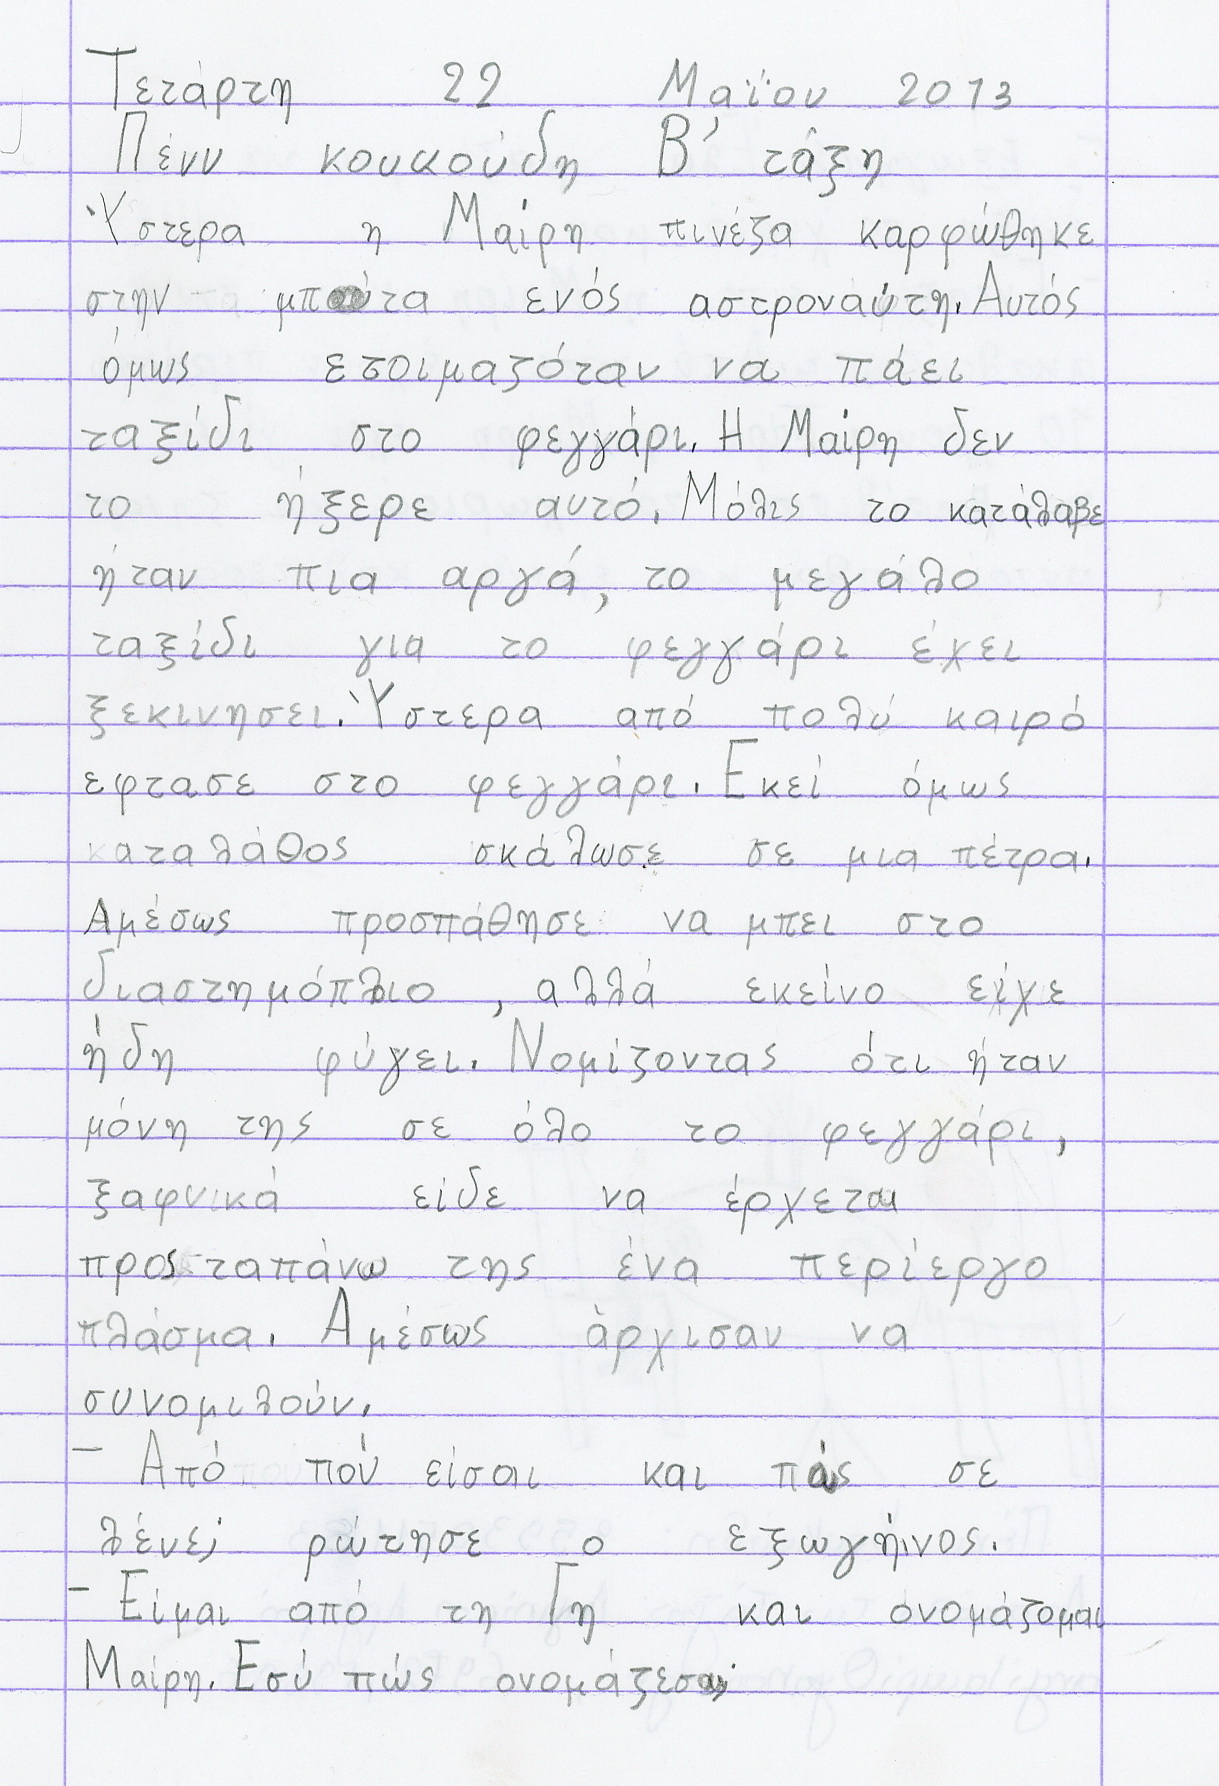 Τετάρτη 22 Μαΐου 2013
Πένυ κουκούδη Β' τάξη
Ύστερα η Μαίρη πινέζα καρφώθηκε
στην μπότα ενός αστροναύτη. Αυτός
όμως ετοιμαζόταν να πάει
ταξίδι στο φεγγάρι. Η Μαίρη δεν
το ήξερε αυτό. Μόλις το κατάλαβε
ήταν πια αργά, το μεγάλο
ταξίδι για το φεγγάρι έχει
ξεκινησει. Ύστερα από πολύ καιρό
εφτασε στο φεγγάρι. Εκεί όμως
καταλάθος σκάλωσε σε μια πέτρα.
Αμέσως προσπάθησε να μπει στο
διαστημόπλιο, αλλά εκείνο είχε
ήδη φύγει. Νομίζοντας ότι ήταν
μόνη της σε όλο το φεγγάρι,
ξαφνικά είδε να έρχεται
προς ταπάνω της ένα περίεργο
πλάσμα. Αμέσως άρχισαν να
συνομιλούν.
- Από πού είσαι και πώς σε
λένε; ρώτησε ο εξωγήινος.
- Είμαι από τη Γη και ονομάζομαι
Μαίρη. Εσύ πώς ονομάζεσαι;